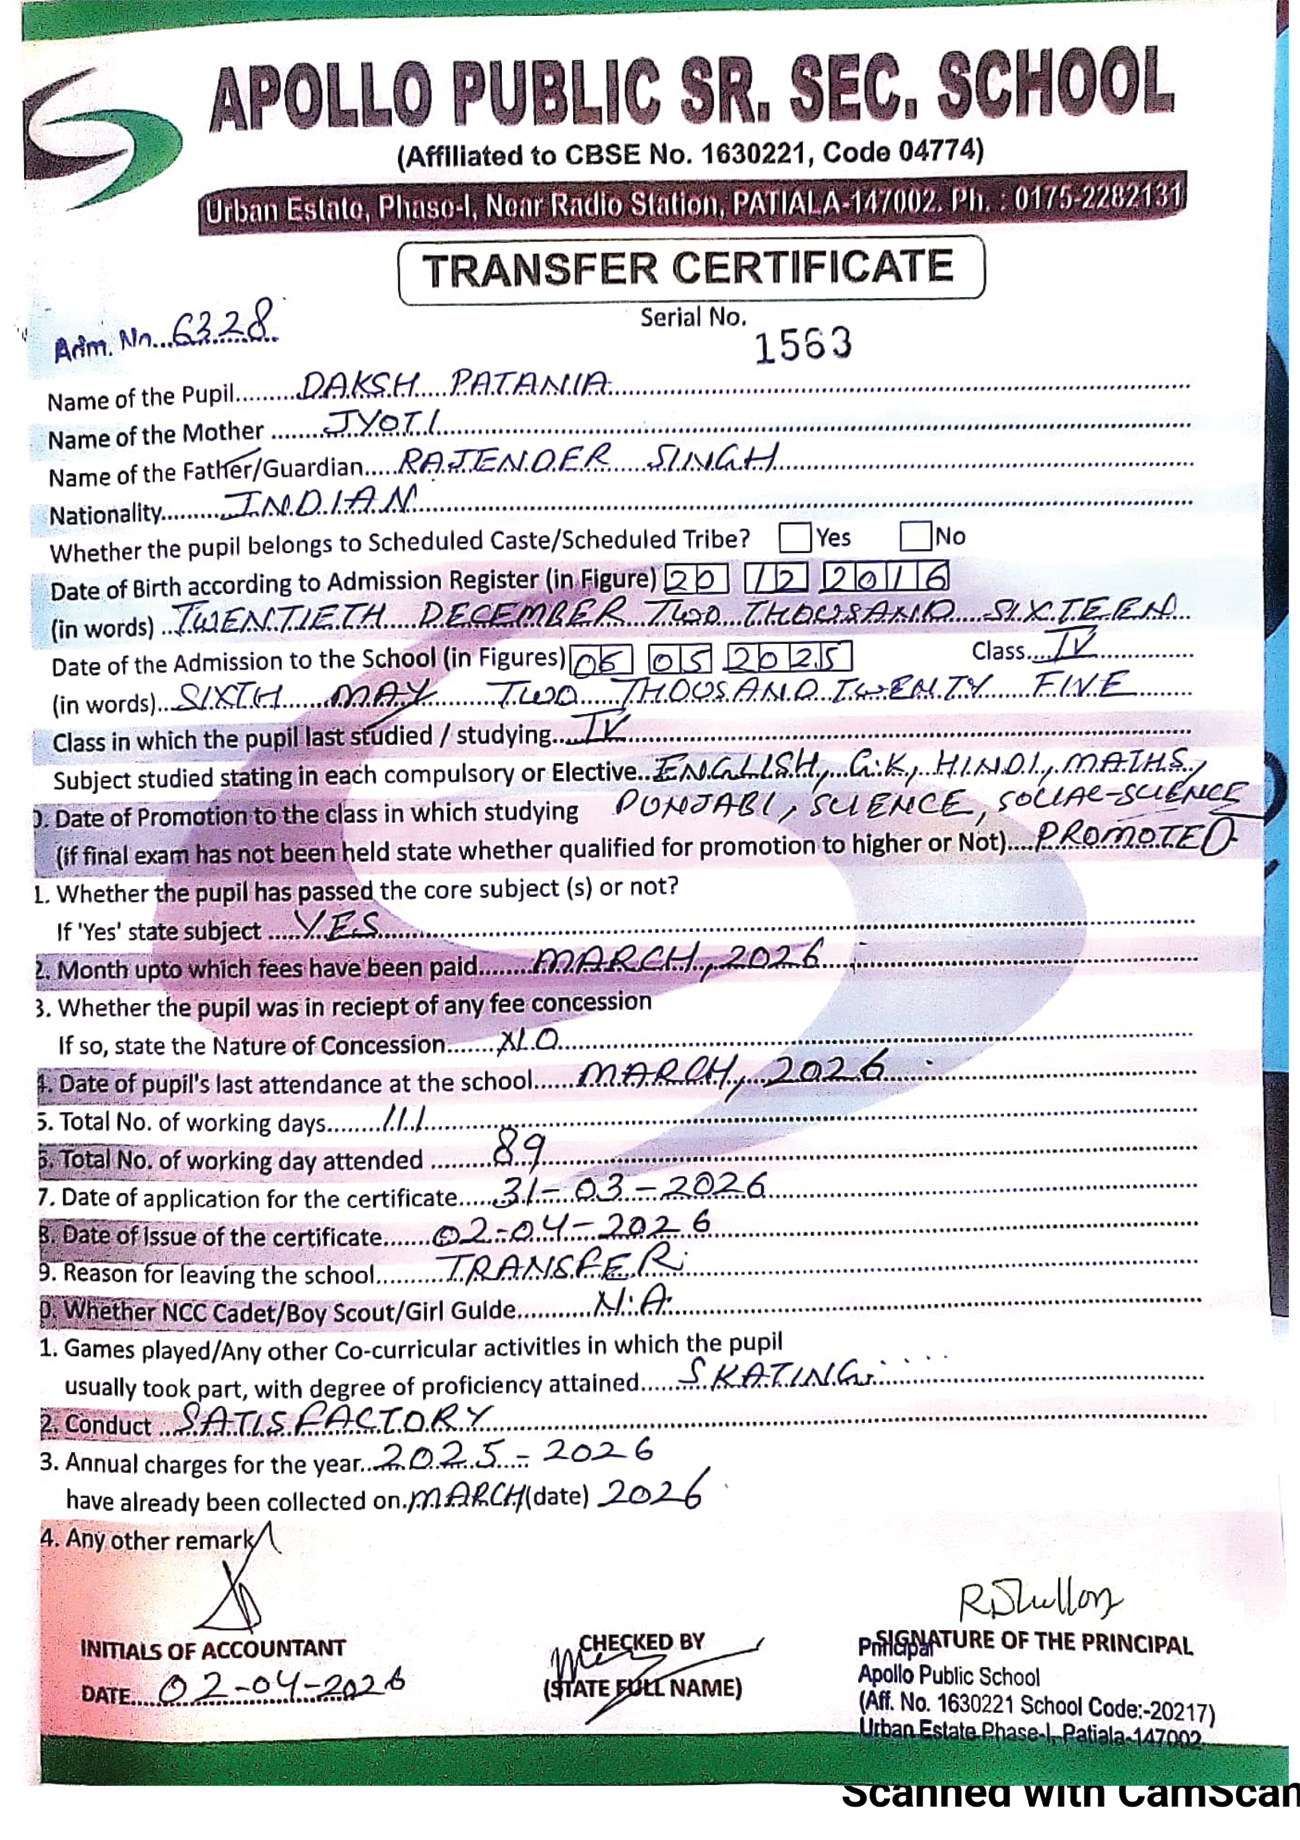 APOLLO PUBLIC SR. SEC. SCHOOL
(Affiliated to CBSE No. 1630221, Code 04774)
Urban Estate, Phase-I, Near Radio Station, PATIALA-147002. Ph. : 0175-2282131
TRANSFER CERTIFICATE
Serial No.
1563
Adm. No...6328
Name of the Pupil.........DAKSH PATANIA
Name of the Mother ........JYOTI
Name of the Father/Guardian.....RAJENDER SINGH
Nationality..........INDIAN
Whether the pupil belongs to Scheduled Caste/Scheduled Tribe? Yes No
Date of Birth according to Admission Register (in Figure) 20 12 2016
(in words) ..TWENTIETH DECEMBER TWO THOUSAND SIXTEEN
Date of the Admission to the School (in Figures) 06 05 2025 Class....IV
(in words)..SIXTH MAY TWO THOUSAND TWENTY FIVE
Class in which the pupil last studied / studying....IV
Subject studied stating in each compulsory or Elective..ENGLISH, G.K, HINDI, MATHS,
PUNJABI, SCIENCE, SOCIAL-SCIENCE
0. Date of Promotion to the class in which studying
(if final exam has not been held state whether qualified for promotion to higher or Not)....PROMOTED
1. Whether the pupil has passed the core subject (s) or not?
If 'Yes' state subject .....YES
2. Month upto which fees have been paid........MARCH, 2026
3. Whether the pupil was in reciept of any fee concession
If so, state the Nature of Concession.......NO
4. Date of pupil's last attendance at the school......MARCH, 2026
5. Total No. of working days........111
6. Total No. of working day attended ..........89
7. Date of application for the certificate......31-03-2026
8. Date of Issue of the certificate.......02-04-2026
9. Reason for leaving the school..........TRANSFER
0. Whether NCC Cadet/Boy Scout/Girl Guide...........N.A.
1. Games played/Any other Co-curricular activities in which the pupil
usually took part, with degree of proficiency attained......SKATING
2. Conduct ...SATISFACTORY
3. Annual charges for the year...2025-2026
have already been collected on.MARCH(date) 2026
4. Any other remark
INITIALS OF ACCOUNTANT
DATE....02-04-2026
CHECKED BY
(STATE FULL NAME)
SIGNATURE OF THE PRINCIPAL
Principal
Apollo Public School
(Aff. No. 1630221 School Code:-20217)
Urban Estate Phase-I, Patiala-147002
Scanned with CamScan